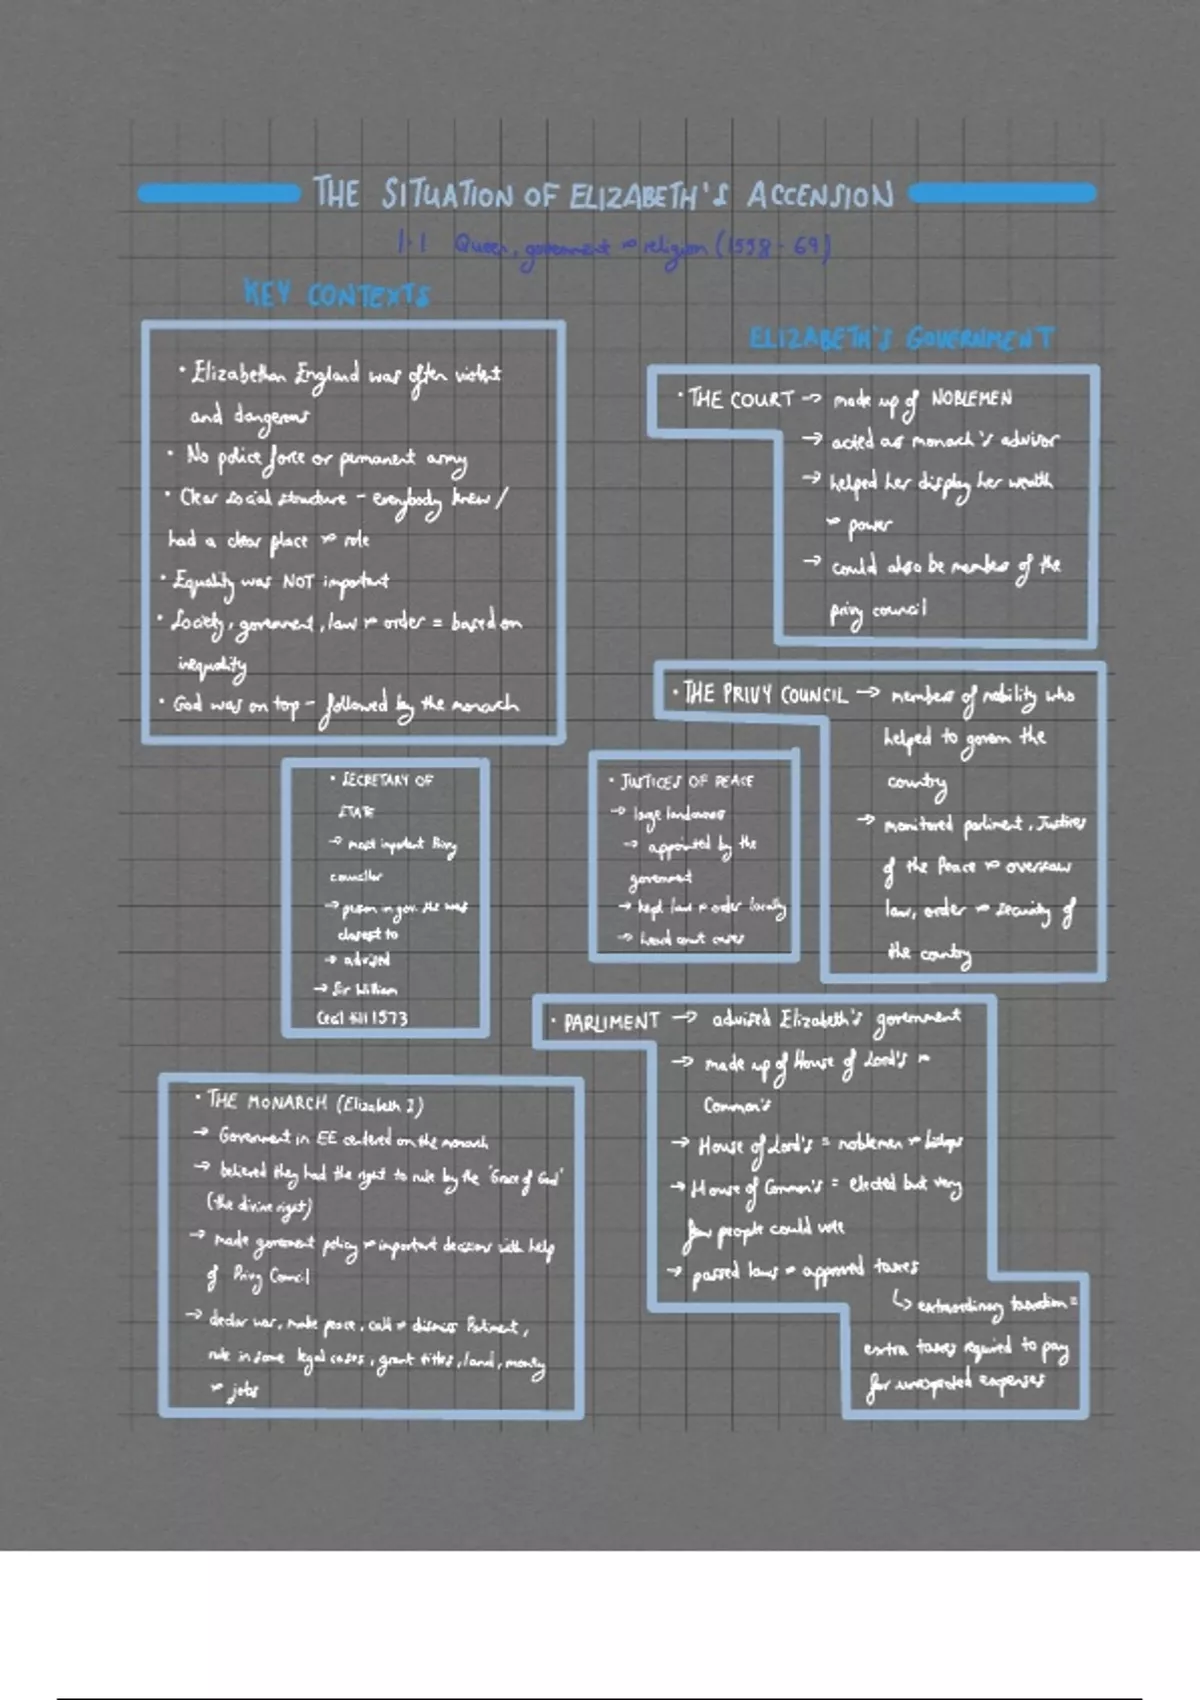 THE SITUATION OF ELIZABETH'S ACCENSION
1.1 Queen, government & religion (1558-69)
KEY CONTEXTS
• Elizabethan England was often violent
and dangerous
• No police force or permanent army
• Clear social structure - everybody knew/
had a clear place & role
• Equality was NOT important
• Society, government, law & order = based on
inequality
• God was on top - followed by the monarch
ELIZABETH'S GOVERNMENT
• THE COURT → made up of NOBLEMEN
→ acted as monarch's advisor
→ helped her display her wealth
& power
→ could also be member of the
privy council
• THE PRIVY COUNCIL → members of nobility who
helped to govern the
country
→ monitored parliment, Justices
of the Peace & oversaw
law, order & security of
the country
• SECRETARY OF
STATE
→ most important Privy
councillor
→ person in gov. she was
closest to
→ advised
→ Sir William
Cecil till 1573
• JUSTICES OF PEACE
→ large landowners
→ appointed by the
government
→ kept law & order locally
→ heard court cases
• PARLIMENT → advised Elizabeth's government
→ made up of House of Lord's &
Common's
→ House of Lord's = noblemen & bishops
→ House of Common's = elected but very
few people could vote
→ passed laws & approved taxes
↳ extraordinary taxation =
extra taxes required to pay
for unexpected expenses
• THE MONARCH (Elizabeth I)
→ Government in EE centered on the monarch
→ believed they had the right to rule by the 'Grace of God'
(the divine right)
→ made government policy & important decisions with help
of Privy Council
→ declar war, make peace, call & dismiss Parliment,
rule in some legal cases, grant titles, land, money
& jobs